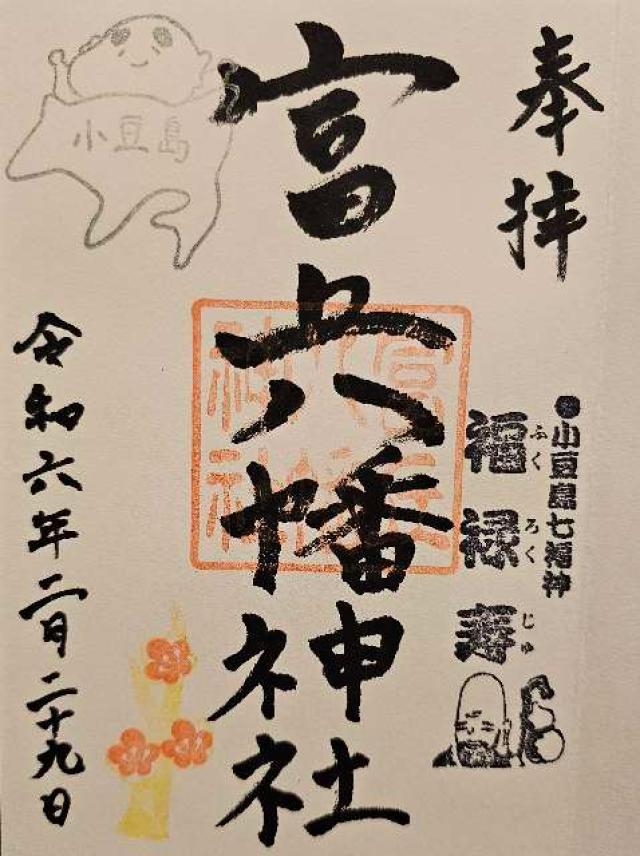 奉拝
●小豆島七福神
福禄寿
ふくろくじゅ
富丘八幡神社
富丘
八幡
神社
小豆島
令和六年二月二十九日